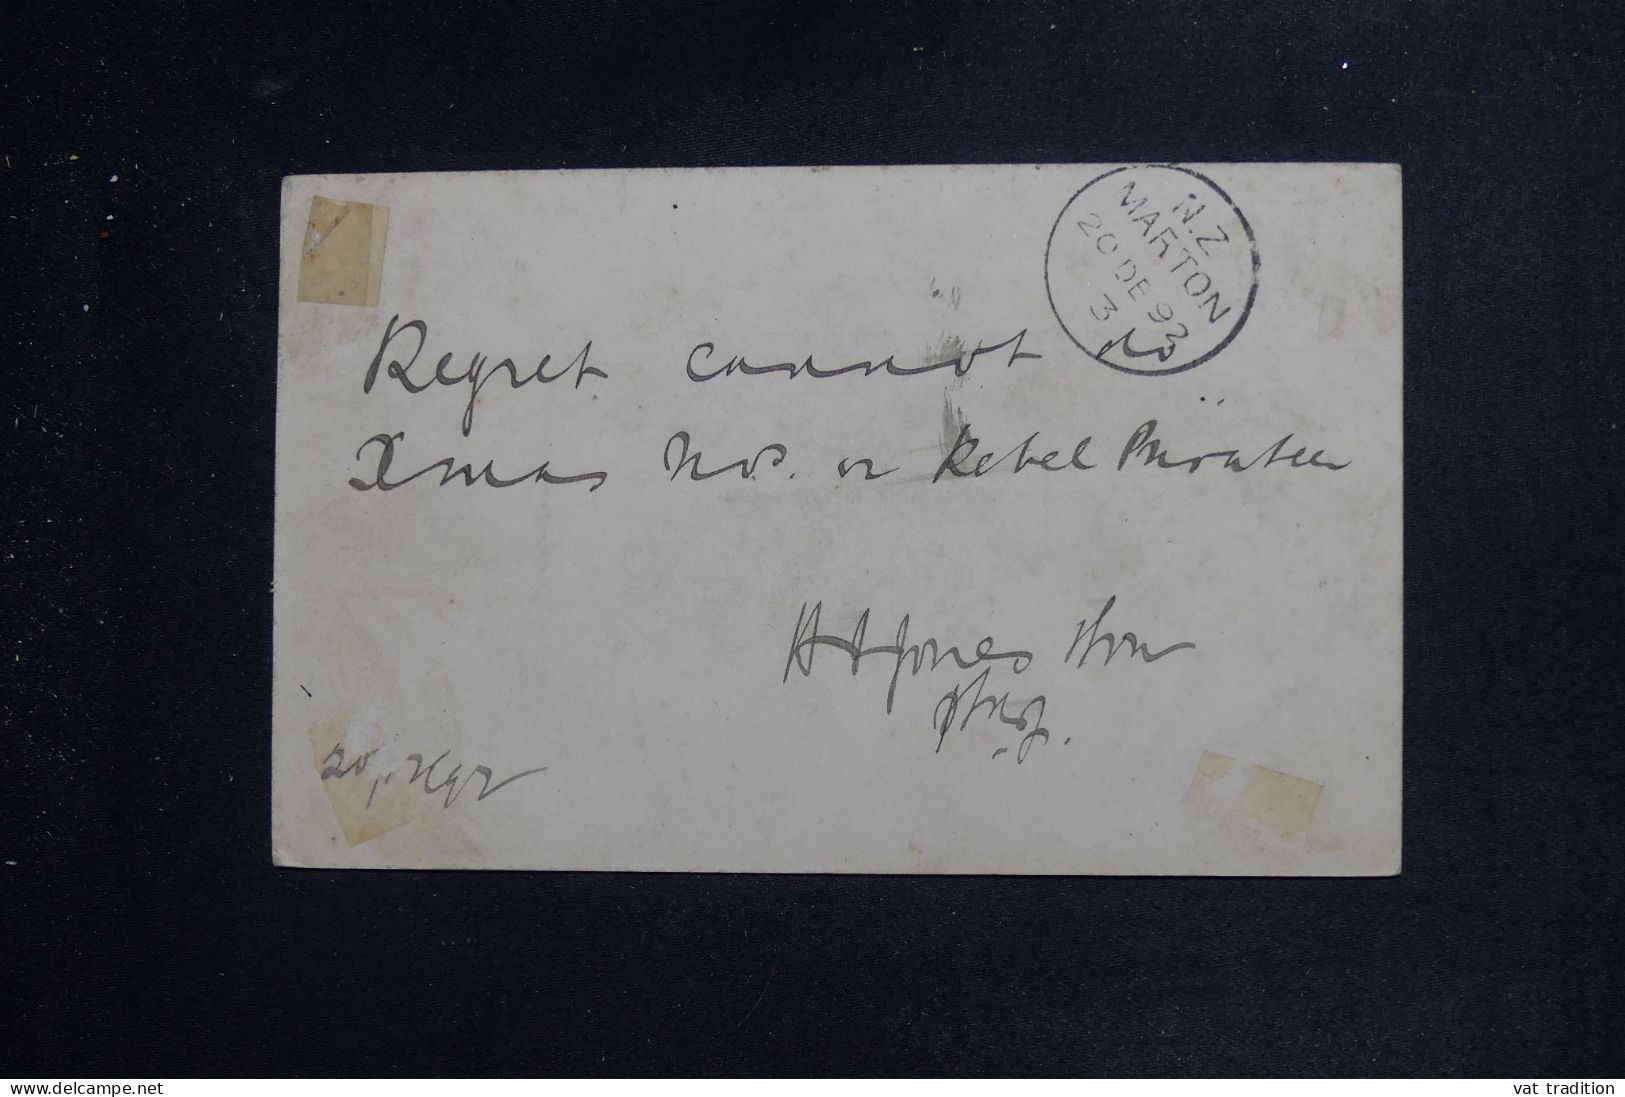 N.Z
MARTON
20 DE 92
3
Regret cannot do
Xmas Nos. or Rebel Privateer
H H Jones
20
www.delcampe.net
vat tradition